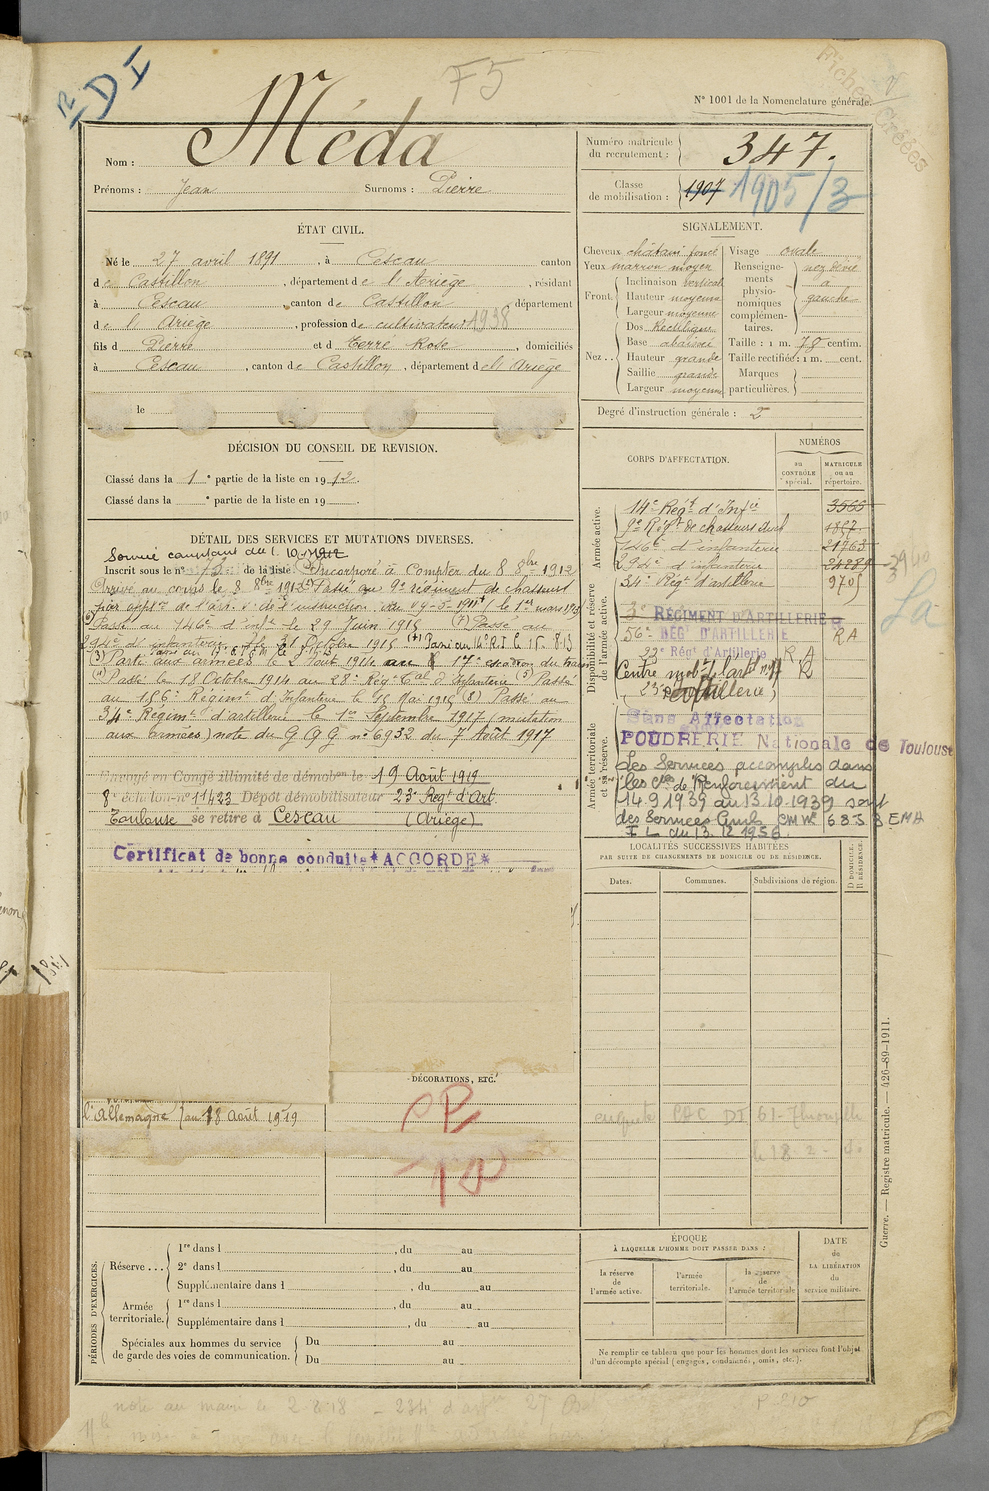 F5
N° 1001 de la Nomenclature générale.
Fiches créées
Nom : Méda
Prénoms : Jean Surnoms : Pierre
Numéro matricule du recrutement : 347.
Classe de mobilisation : 1907 1905/3
ÉTAT CIVIL.
Né le 27 avril 1891, à Cescau canton
de Castillon, département de l'Ariège, résidant
à Cescau canton de Castillon département
de l'Ariège, profession de cultivateur 1938
fils d Pierre et d Terré Rose, domiciliés
à Cescau, canton de Castillon, département de l'Ariège
le
SIGNALEMENT.
Cheveux châtain foncé
Yeux marron moyen
Front. Inclinaison verticale
Hauteur moyenne
Largeur moyenne
Nez.. Dos Rectiligne
Base abaissée
Hauteur grande
Saillie grande
Largeur moyenne
Visage ovale
Renseignements physionomiques complémentaires. nez dévié
à
gauche
Taille : 1 m. 78 centim.
Taille rectifiée : 1 m. cent.
Marques particulières.
Degré d'instruction générale : 2
DÉCISION DU CONSEIL DE REVISION.
Classé dans la 1e partie de la liste en 1912.
Classé dans la e partie de la liste en 19
DÉTAIL DES SERVICES ET MUTATIONS DIVERSES.
Service comptant du 1.10.1912
Inscrit sous le n° de la liste Incorporé à compter du 8 8bre 1912
Arrivé au corps le 8 8bre 1912 Passé au 9e régiment de chasseurs
le 1er mars 1913
Passé au 146e d'infie le 29 Juin 1915 (7) Passé au
294e d'infanterie le 31 Octobre 1915
(3) Parti aux armées le 2 Août 1914 au 17e escadron du train
(4) Passé le 18 Octobre 1914 au 28e Régt Cal d'Infanterie (5) Passé
au 156e Régimt d'Infanterie le 15 Mai 1915 (8) Passé au
34e Régimt d'artillerie le 1er Septembre 1917 (mutation
aux armées) note du G Q G n° 6932 du 7 Août 1917
Envoyé en Congé illimité de démobon le 19 Août 1919
8e échelon n° 11423 Dépôt démobilisateur 23e Régt d'Art.
Toulouse se retire à Cescau (Ariège)
Certificat de bonne conduite *ACCORDÉ*
CORPS D'AFFECTATION.
NUMÉROS
au CONTRÔLE spécial.
MATRICULE ou au répertoire.
Armée active.
14e Régt d'Infie 3565
9e Régt de chasseurs 1857
146e d'infanterie 21763
294e d'infanterie 21289
34e Régt d'artillerie 9705
La
Disponibilité et réserve de l'armée active.
3e RÉGIMENT D'ARTILLERIE
56e RÉGt D'ARTILLERIE R A
23e Régt d'Artillerie R A
Centre mobr d'art n° 17 R
23e artillerie
Armée territoriale et sa réserve.
Sans Affectation
POUDRERIE Nationale de Toulouse
Les Services accomplis dans
les Cies de Renforcement du
14.9.1939 au 13.10.1939 sont
des Services Civils CM n° 6853 EMA
I L du 13.12.1956.
LOCALITÉS SUCCESSIVES HABITÉES
PAR SUITE DE CHANGEMENTS DE DOMICILE OU DE RÉSIDENCE.
Dates. Communes. Subdivisions de région.
D. DOMICILE. R. RÉSIDENCE.
DÉCORATIONS, ETC.
l'Allemagne au 18 Août 1919
PÉRIODES D'EXERCICES.
Réserve... 1re dans l , du au
2e dans l , du au
Supplémentaire dans l , du au
Armée territoriale. 1re dans l , du au
Supplémentaire dans l , du au
Spéciales aux hommes du service de garde des voies de communication. Du au
Du au
ÉPOQUE
À LAQUELLE L'HOMME DOIT PASSER DANS :
la réserve de l'armée active.
l'armée territoriale.
la réserve de l'armée territoriale
DATE de LA LIBÉRATION du service militaire.
Ne remplir ce tableau que pour les hommes dont les services font l'objet
d'un décompte spécial (engagés, condamnés, omis, etc.).
Guerre. — Registre matricule. — 426-89-1911.